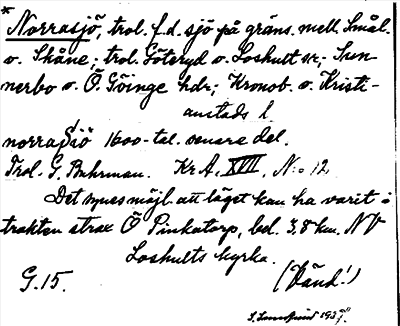 * Norrasjö, trol. f.d. sjö på gräns. mell. Smål.
o. Skåne; trol. Göteryd o. Loshult sr; Sun-
nerbo o. Ö. Göinge hdr; Kronob. o. Kristi-
anstads l.
norrasjö 1600-tal. senare del.
Trol. G. Buhrman. Kr.A. XVIII, N:o 12
Det synes möjl. att läget kan ha varit i
trakten strax Ö Pinkatorp, bel. 3,8 km. NV
Loshults kyrka.
G. 15. (Vänd!)
1937